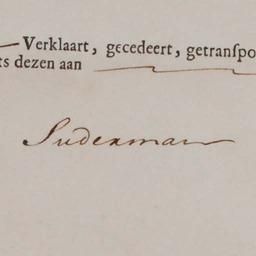 Verklaart, gecedeert, getranſpo
ts dezen aan
Suderman